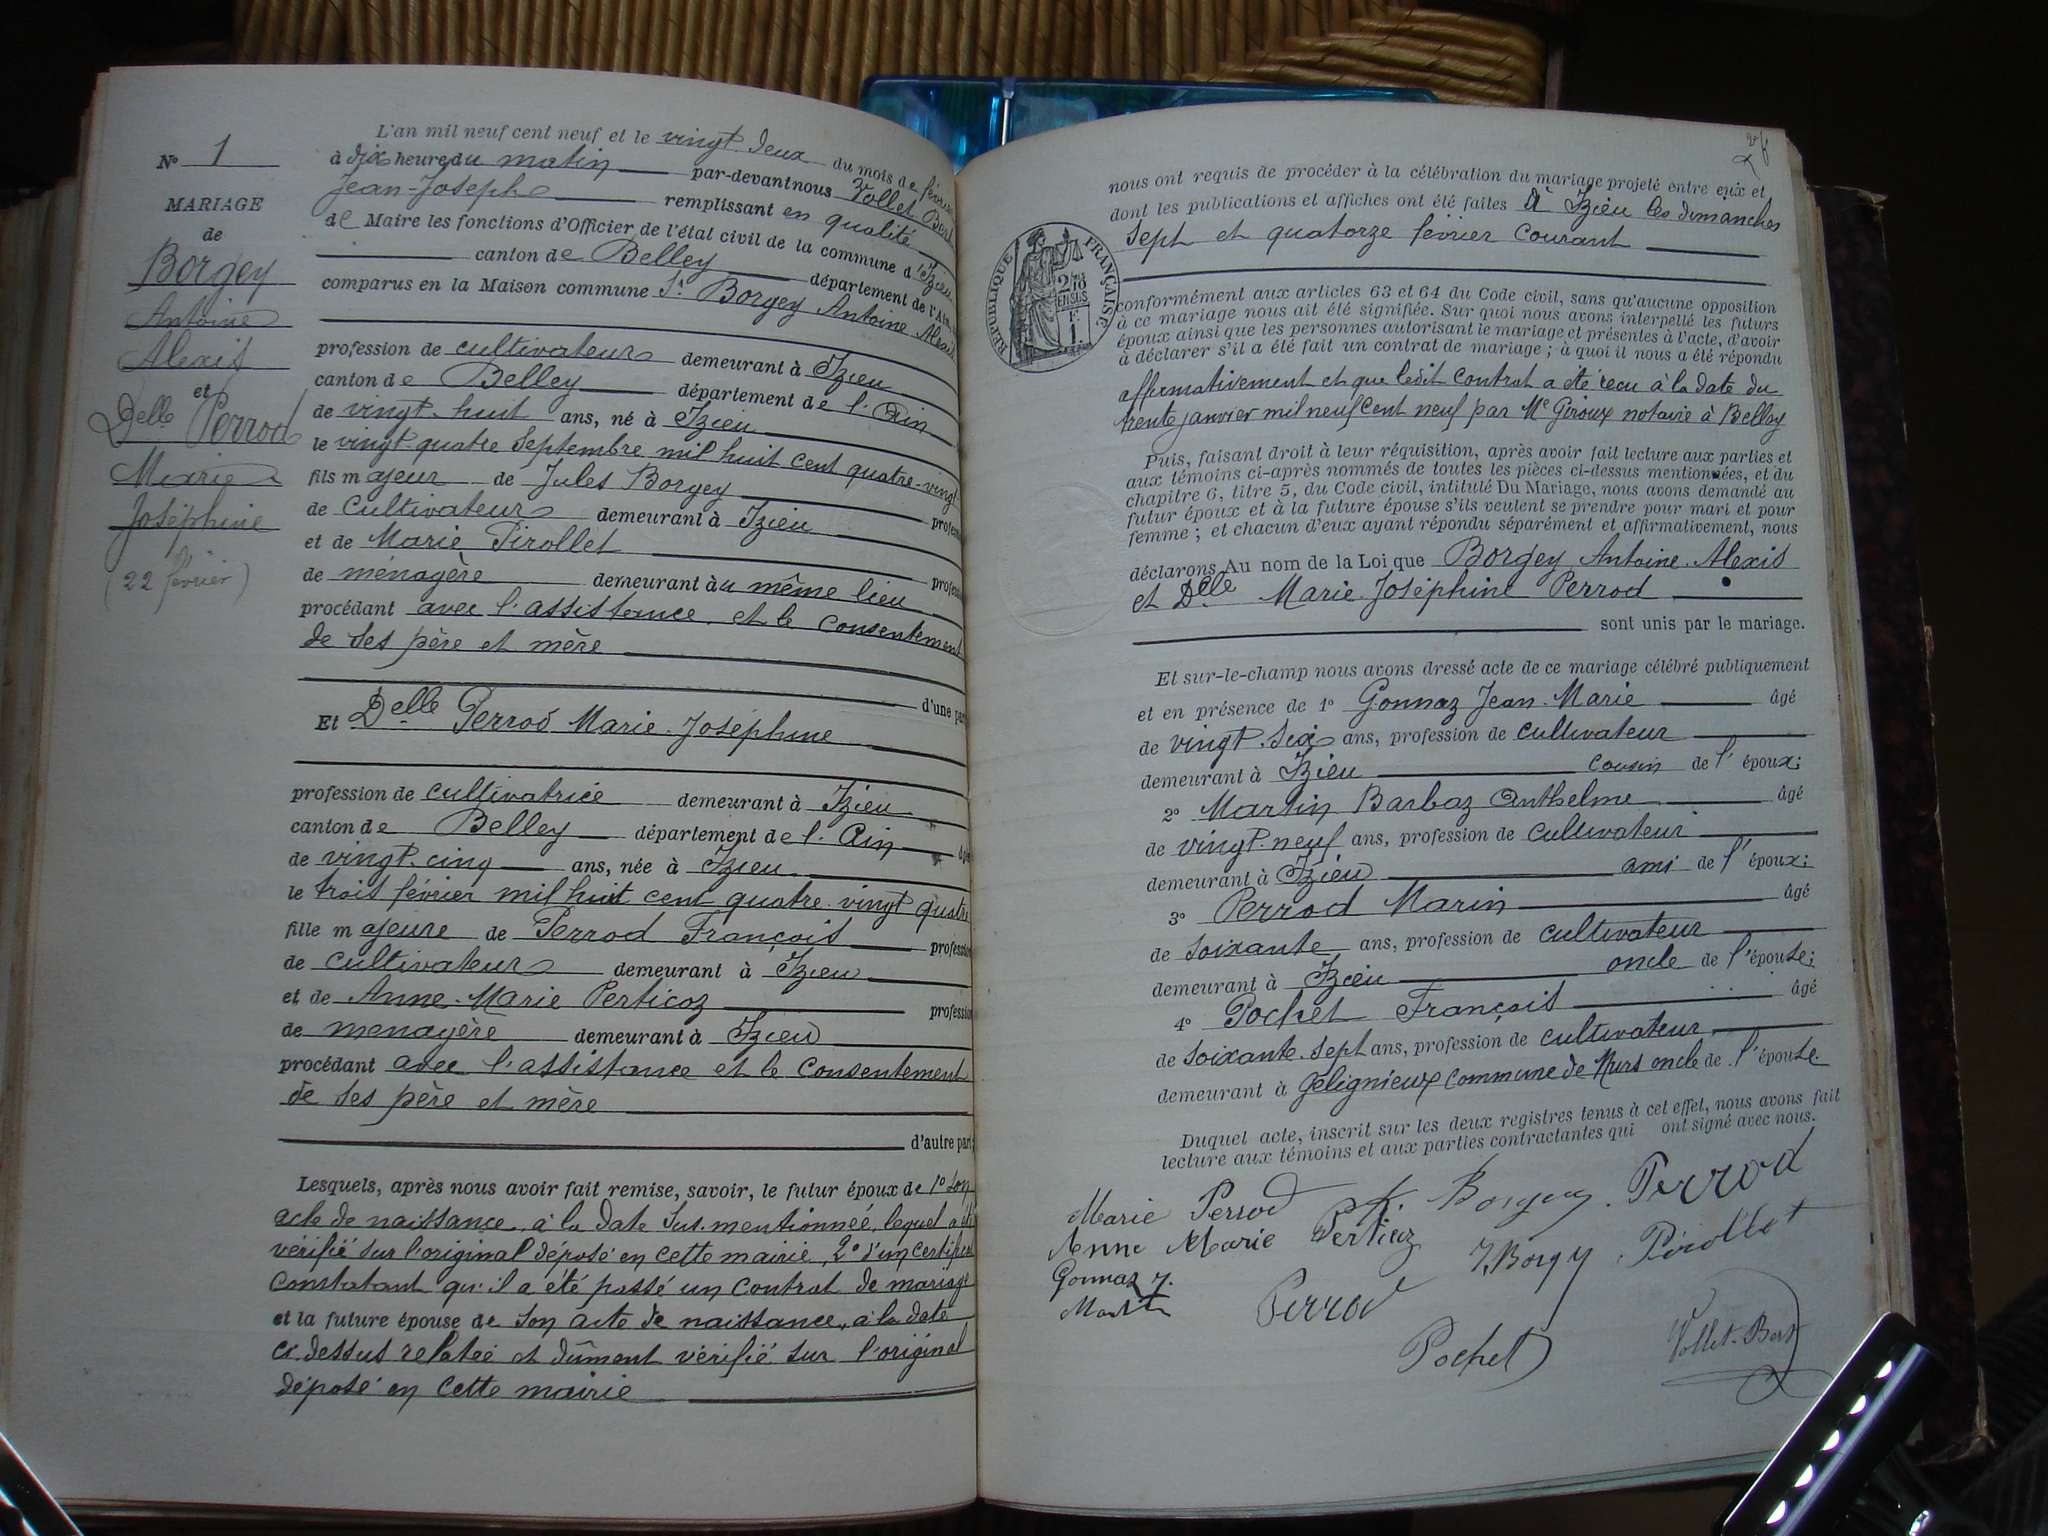 N° 1
MARIAGE
de
Borgey
Antoine
Alexis
et
Delle Perrod
Marie
Joséphine
(22 février)
L'an mil neuf cent neuf et le vingt deux du mois de février
à dix heure du matin par-devant nous Vollet Bert
Jean-Joseph remplissant en qualité
de Maire les fonctions d'Officier de l'état civil de la commune d'Izieu
canton de Belley département de l'Ain
comparus en la Maison commune Sr Borgey Antoine Alexis
profession de cultivateur demeurant à Izieu
canton de Belley département de l'Ain
de vingt-huit ans, né à Izieu
le vingt-quatre septembre mil huit cent quatre-vingt
fils majeur de Jules Borgey profession
de cultivateur demeurant à Izieu
et de Marie Pirollet profession
de ménagère demeurant au même lieu
procédant avec l'assistance et le consentement
de ses père et mère
d'une part
Et Delle Perrod Marie-Joséphine
profession de cultivatrice demeurant à Izieu
canton de Belley département de l'Ain âgée
de vingt-cinq ans, née à Izieu
le trois février mil huit cent quatre-vingt quatre
fille majeure de Perrod François profession
de cultivateur demeurant à Izieu
et de Anne-Marie Perticoz profession
de menagère demeurant à Izieu
procédant avec l'assistance et le consentement
de ses père et mère
d'autre part;
Lesquels, après nous avoir fait remise, savoir, le futur époux de 1° son
acte de naissance, à la date sus-mentionnée, lequel a été
vérifié sur l'original déposé en cette mairie, 2° d'un certificat
constatant qu'il a été passé un contrat de mariage
et la future épouse de son acte de naissance, à la date
ci-dessus relatée et dûment vérifié sur l'original
déposé en cette mairie
RÉPUBLIQUE FRANÇAISE
2/10
EN SUS
1 F.
nous ont requis de procéder à la célébration du mariage projeté entre eux et
dont les publications et affiches ont été faites à Izieu les dimanches
sept et quatorze février courant
conformément aux articles 63 et 64 du Code civil, sans qu'aucune opposition
à ce mariage nous ait été signifiée. Sur quoi nous avons interpellé les futurs
époux ainsi que les personnes autorisant le mariage et présentes à l'acte, d'avoir
à déclarer s'il a été fait un contrat de mariage ; à quoi il nous a été répondu
affirmativement et que ledit contrat a été reçu à la date du
trente janvier mil neuf cent neuf par Me Giroux notaire à Belley
Puis, faisant droit à leur réquisition, après avoir fait lecture aux parties et
aux témoins ci-après nommés de toutes les pièces ci-dessus mentionnées, et du
chapitre 6, titre 5, du Code civil, intitulé Du Mariage, nous avons demandé au
futur époux et à la future épouse s'ils veulent se prendre pour mari et pour
femme ; et chacun d'eux ayant répondu séparément et affirmativement, nous
déclarons Au nom de la Loi que Borgey Antoine-Alexis
et Delle Marie-Joséphine Perrod
sont unis par le mariage.
Et sur-le-champ nous avons dressé acte de ce mariage célébré publiquement
et en présence de 1° Gonnaz Jean-Marie âgé
de vingt-six ans, profession de cultivateur
demeurant à Izieu cousin de l'époux;
2° Martin Barbaz Anthelme âgé
de vingt-neuf ans, profession de cultivateur
demeurant à Izieu ami de l'époux;
3° Perrod Marin âgé
de soixante ans, profession de cultivateur
demeurant à Izieu oncle de l'épouse;
4° Pochet François âgé
de soixante-sept ans, profession de cultivateur
demeurant à Gelignieux commune de Murs oncle de l'épouse
Duquel acte, inscrit sur les deux registres tenus à cet effet, nous avons fait
lecture aux témoins et aux parties contractantes qui ont signé avec nous.
Marie Perrod Borgey Perrod
Anne Marie Perticoz J Borgey Pirollet
Gonnaz J.
Martin Perrod
Pochet Vollet-Bert